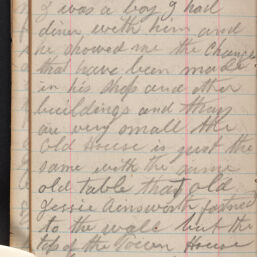 I was a boy I had
dinner with him and
he showed me the Changes
that have been made
in his shop and other
buildings and they
are very small the
old House is just the
same with the same
old table that old
Jessie Ainsworth formed
to the wall but the
top of the Tower House